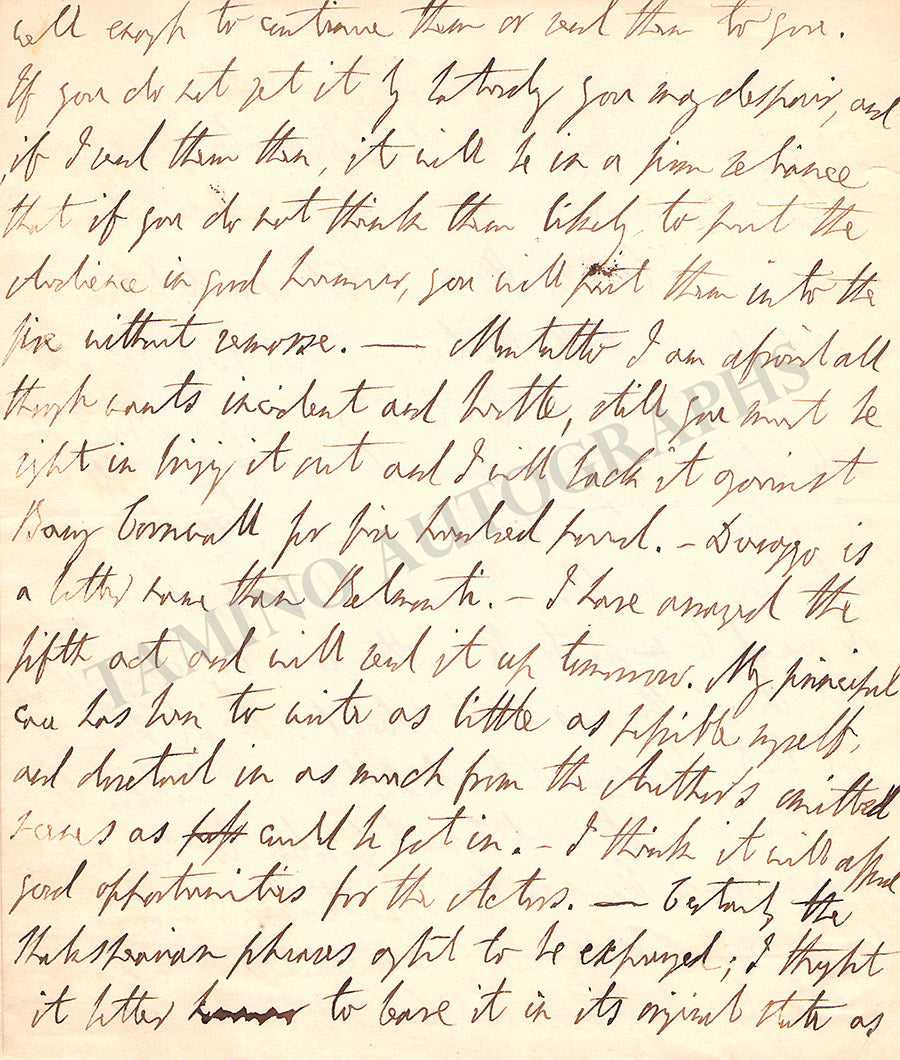 well enough to continue them or send them to you.
If you do not get it by Saturday you may despair, and
if I send them then, it will be in a firm reliance
that if you do not think them likely to put the
Audience in good humour, you will put them into the
fire without remorse. — I am afraid all
though wants incident and bustle, still you must be
right in bringing it out and I will back it against
Barry Cornwall for five hundred pound. — Durazzo is
a better name than Belmonti. — I have arranged the
fifth act and will send it up tomorrow. My principal
care has been to write as little as possible myself,
and dovetail in as much from the Author's omitted
scenes as could be got in. — I think it will afford
good opportunities for the Actors. — Certainly the
Shakspearian phrases ought to be expunged; I thought
it better to leave it in its original state as
TAMINO AUTOGRAPHS